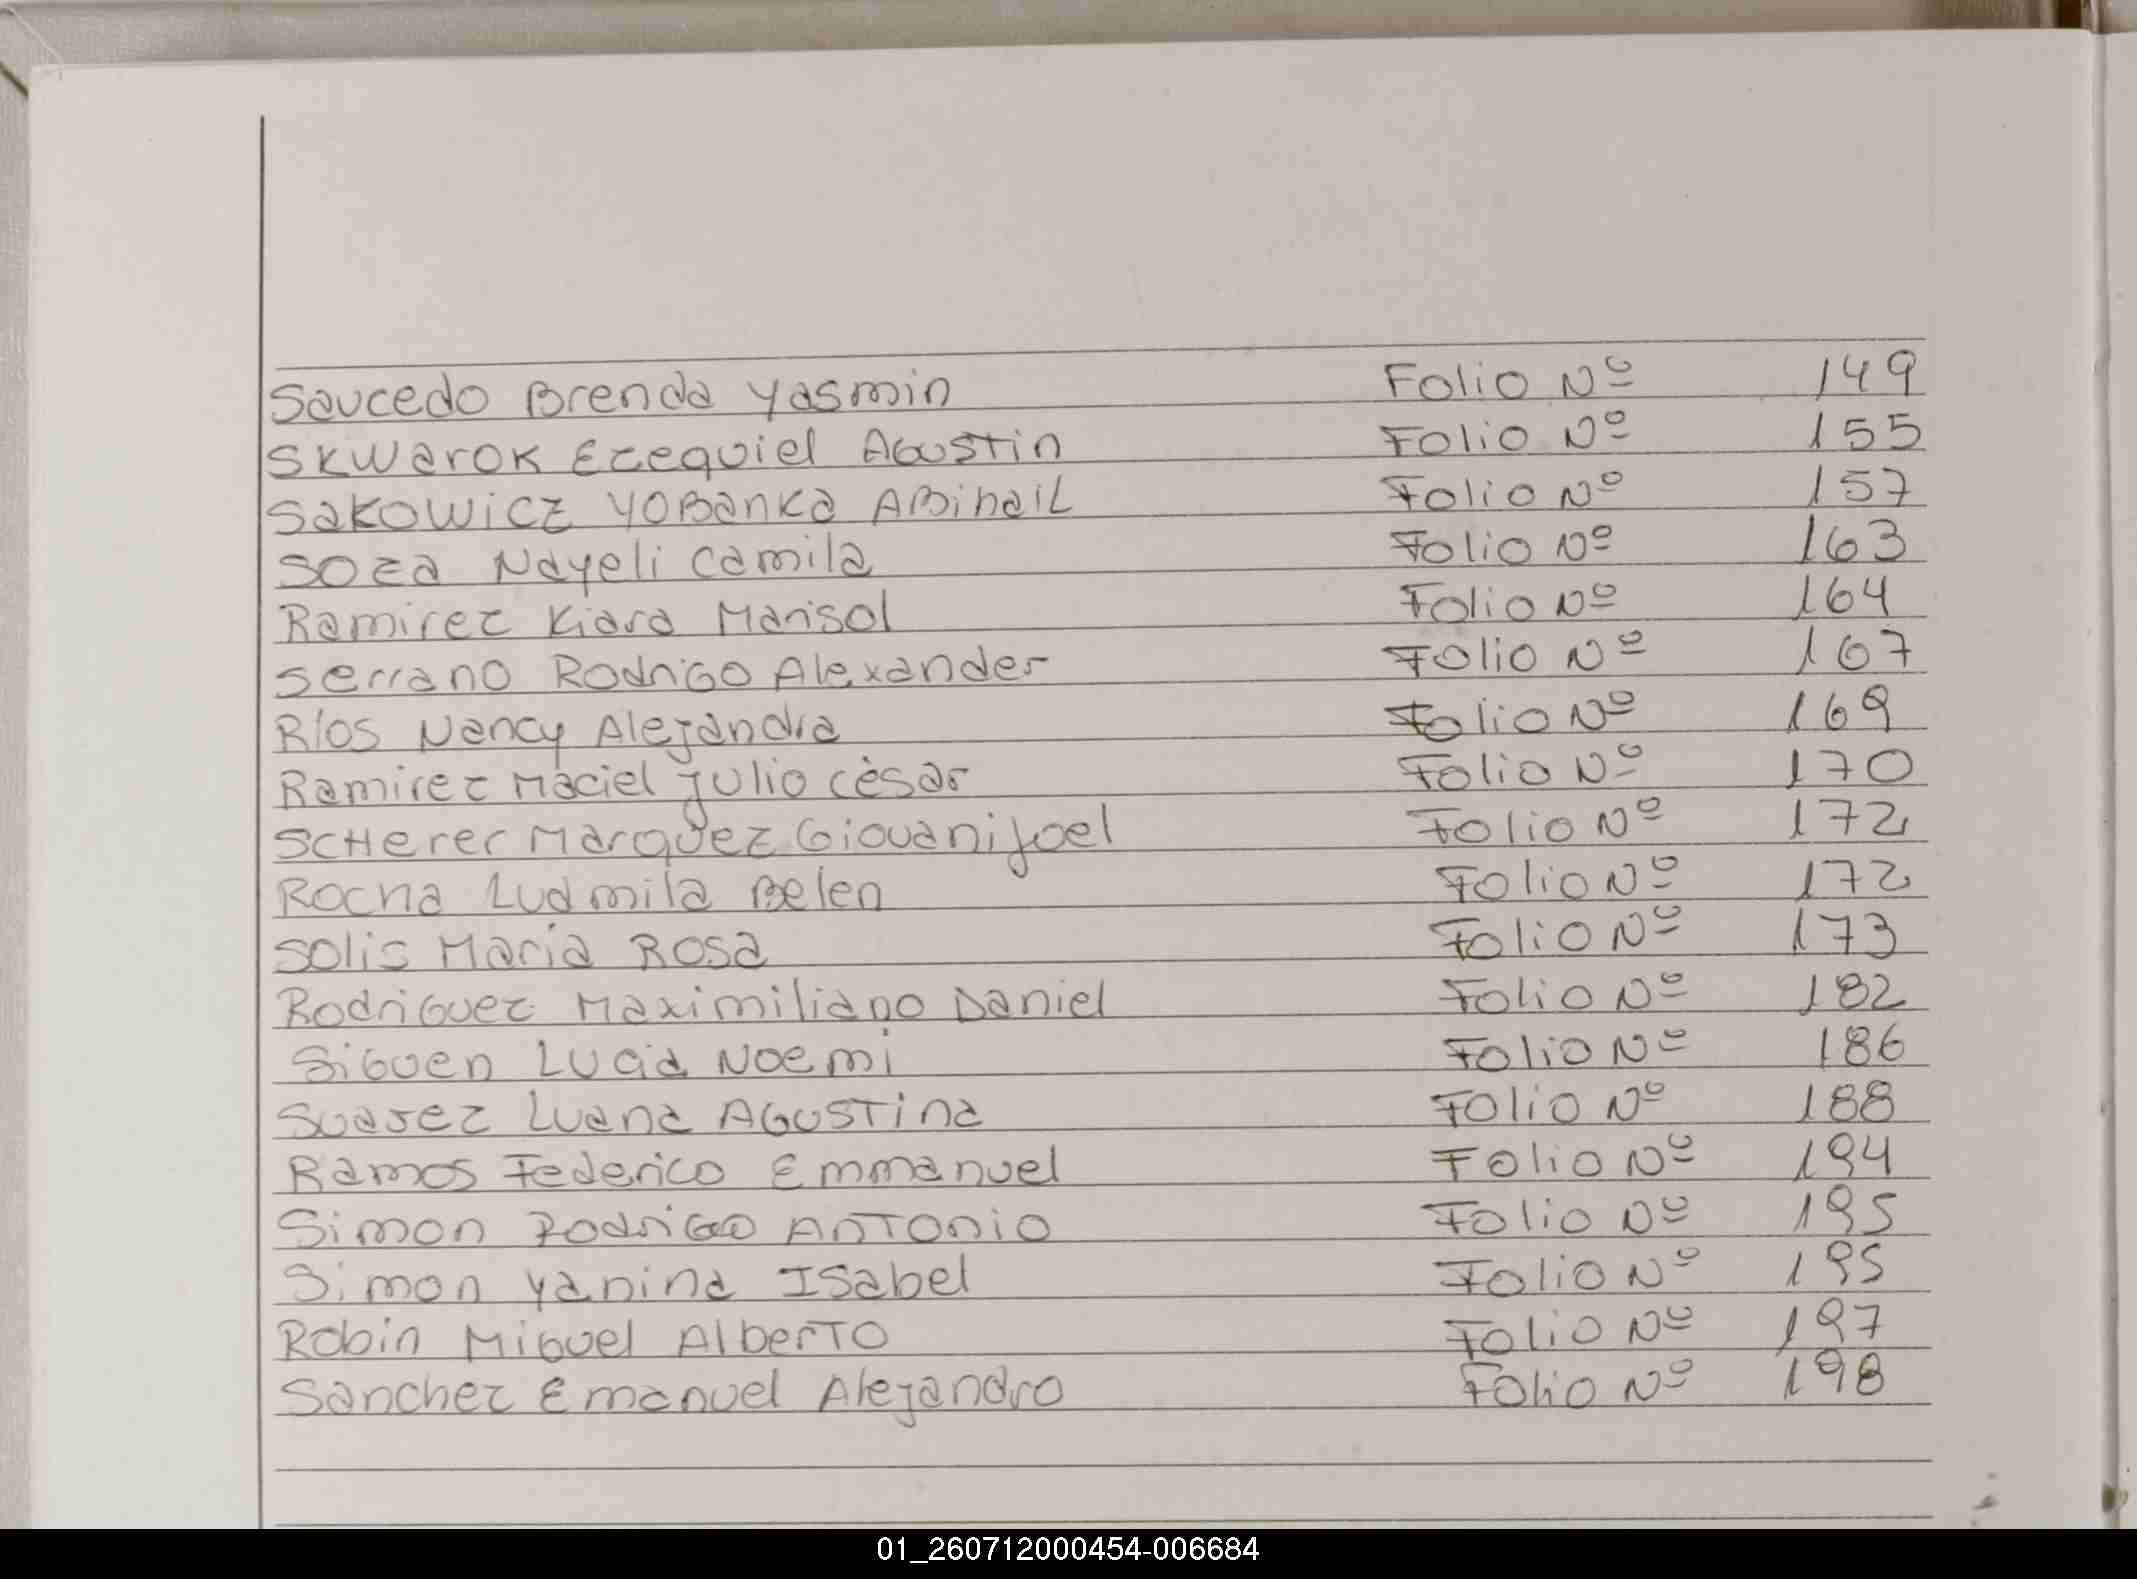 Saucedo Brenda Yasmin Folio Nº 149
Skwarok Ezequiel Agustin Folio Nº 155
Sakowicz Yobanka Abihail Folio Nº 157
Soza Nayeli Camila Folio Nº 163
Ramirez Kiara Marisol Folio Nº 164
Serrano Rodrigo Alexander Folio Nº 167
Ríos Nancy Alejandra Folio Nº 169
Ramirez Maciel Julio Cèsar Folio Nº 170
Scherer Marquez Giovani Joel Folio Nº 172
Rocha Ludmila Belen Folio Nº 172
Solis Maria Rosa Folio Nº 173
Rodriguez Maximiliano Daniel Folio Nº 182
Siguen Lucia Noemi Folio Nº 186
Suarez Luana Agustina Folio Nº 188
Ramos Federico Emmanuel Folio Nº 194
Simon Rodrigo Antonio Folio Nº 195
Simon Yanina Isabel Folio Nº 195
Robin Miguel Alberto Folio Nº 197
Sanchez Emanuel Alejandro Folio Nº 198
01_260712000454-006684